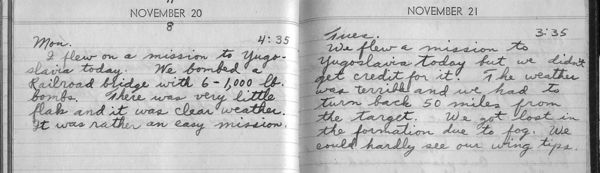 NOVEMBER 20
8
Mon. 4:35
I flew on a mission to Yugo-
slavia today. We bombed a
Railroad bridge with 6-1,000 lb.
bombs. There was very little
flak and it was clear weather.
It was rather an easy mission.
NOVEMBER 21
Tues. 3:35
We flew a mission to
Yugoslavia today but we didn't
get credit for it. The weather
was terrible and we had to
turn back 50 miles from
the target. We got lost in
the formation due to fog. We
could hardly see our wing tips.